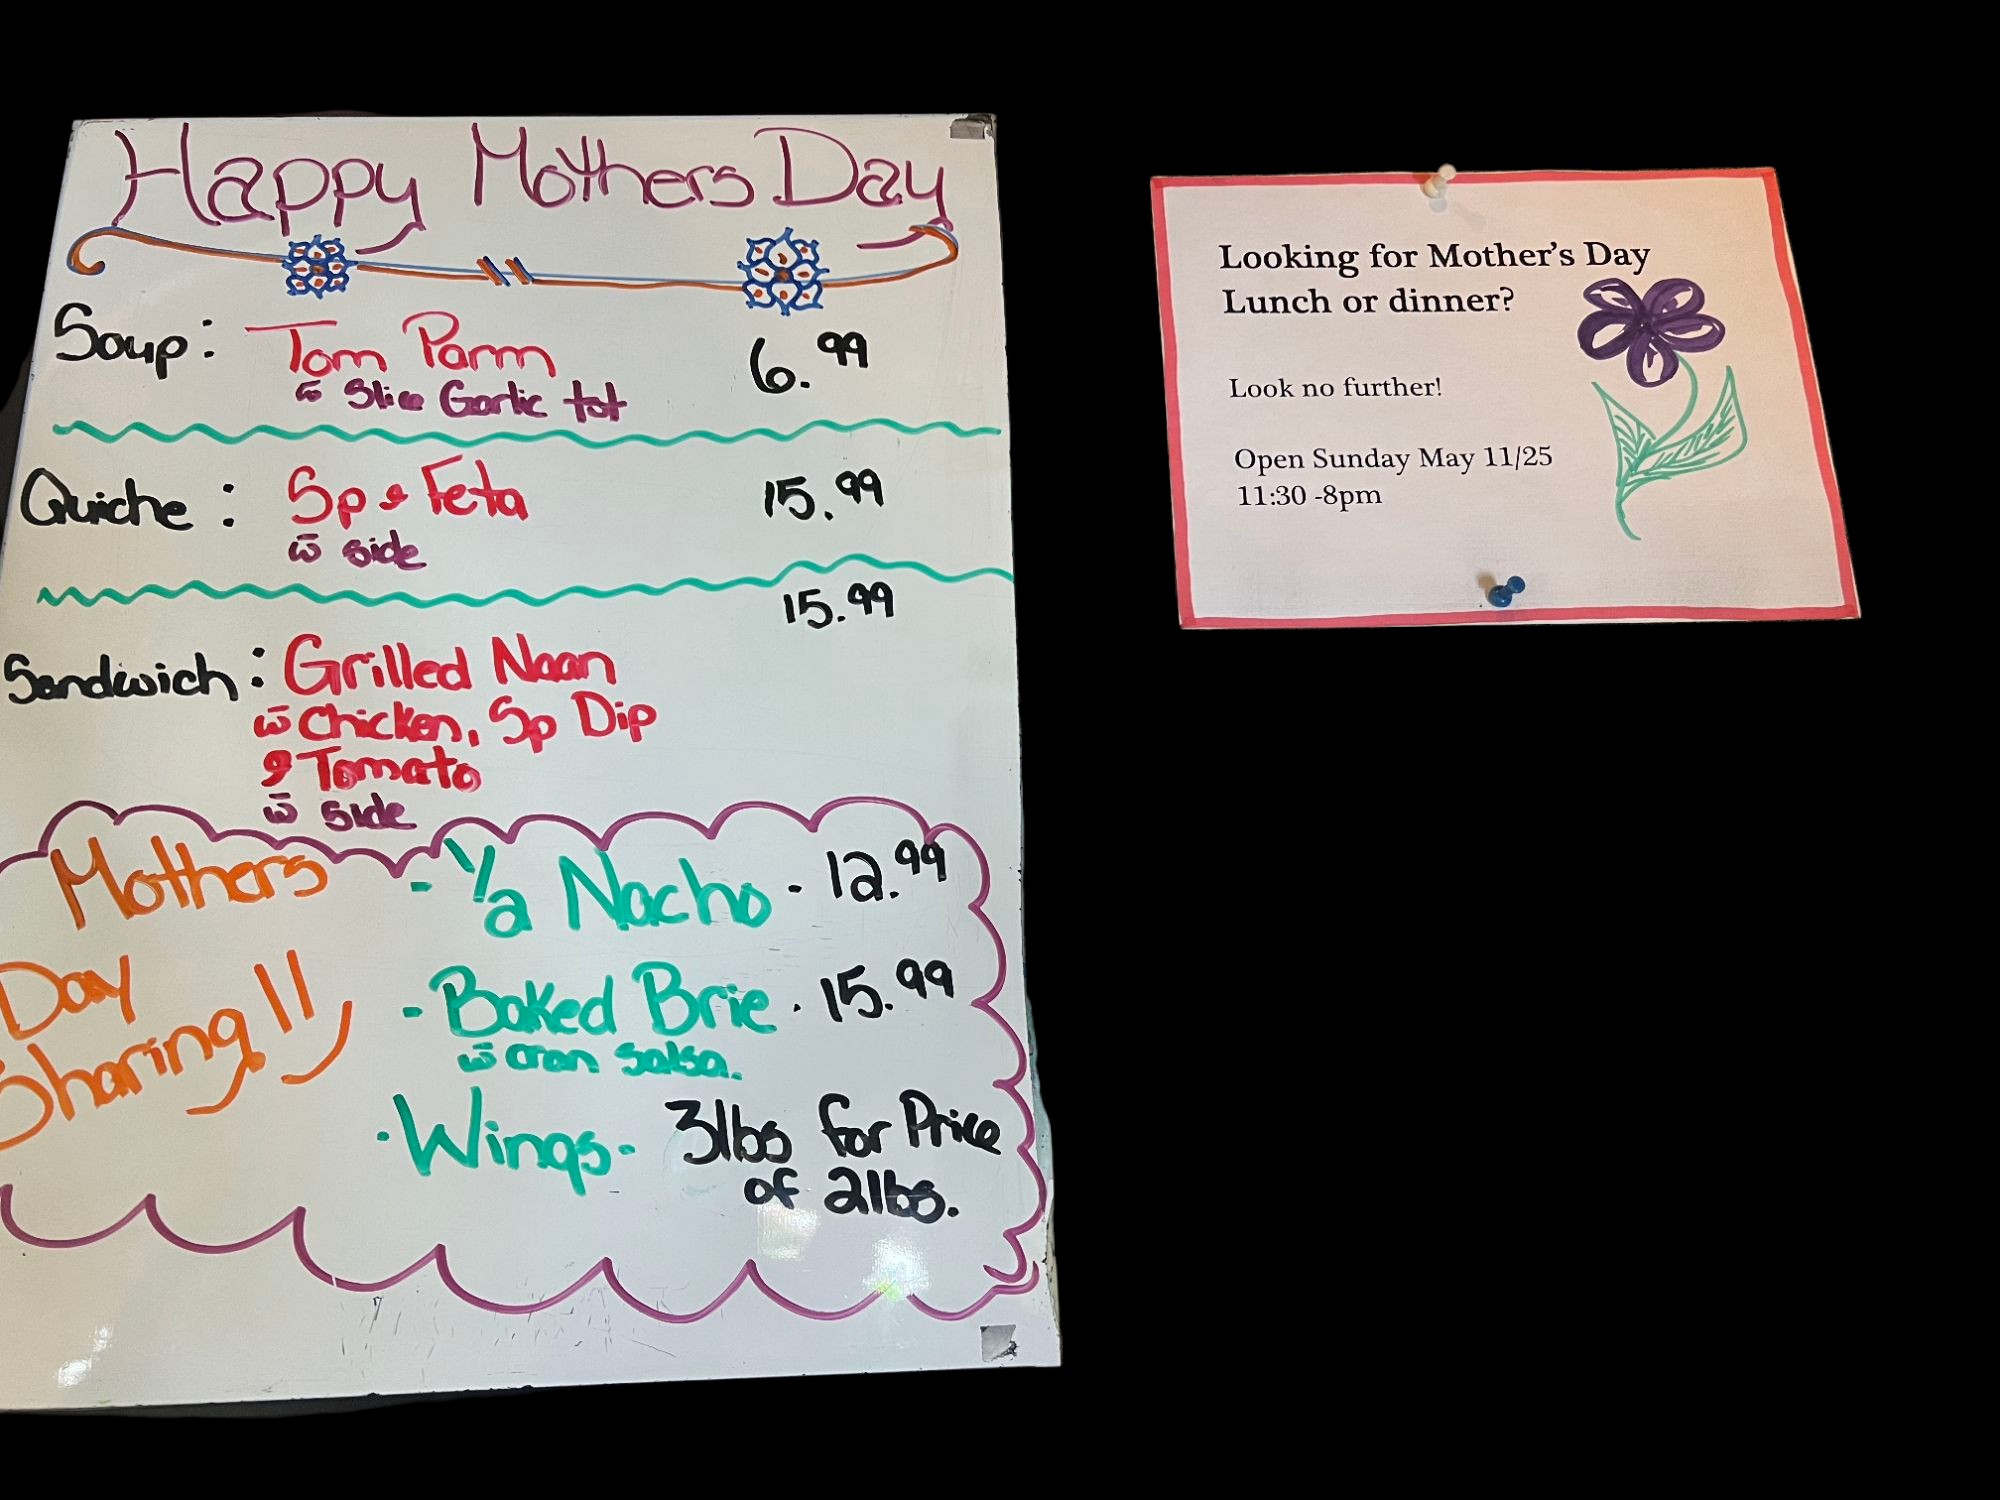 Happy Mothers Day
Soup: Tom Parm 6.99
w̄ Slice Garlic tst
Quiche: Sp & Feta 15.99
w̄ side
15.99
Sandwich: Grilled Naan
w̄ Chicken, Sp Dip
& Tomato
w̄ side
Mothers
Day
Sharing!!
- 1/2 Nacho - 12.99
- Baked Brie - 15.99
w̄ cran salsa.
- Wings - 3lbs for Price
of 2lbs.
Looking for Mother's Day
Lunch or dinner?
Look no further!
Open Sunday May 11/25
11:30 -8pm